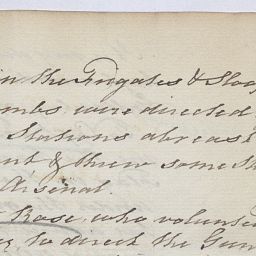 in the Frigates & Sloo
mbs were directed
Stations abreast
nt & threw some sh
Arsenal.
Rose who voluntee
to direct the Gun